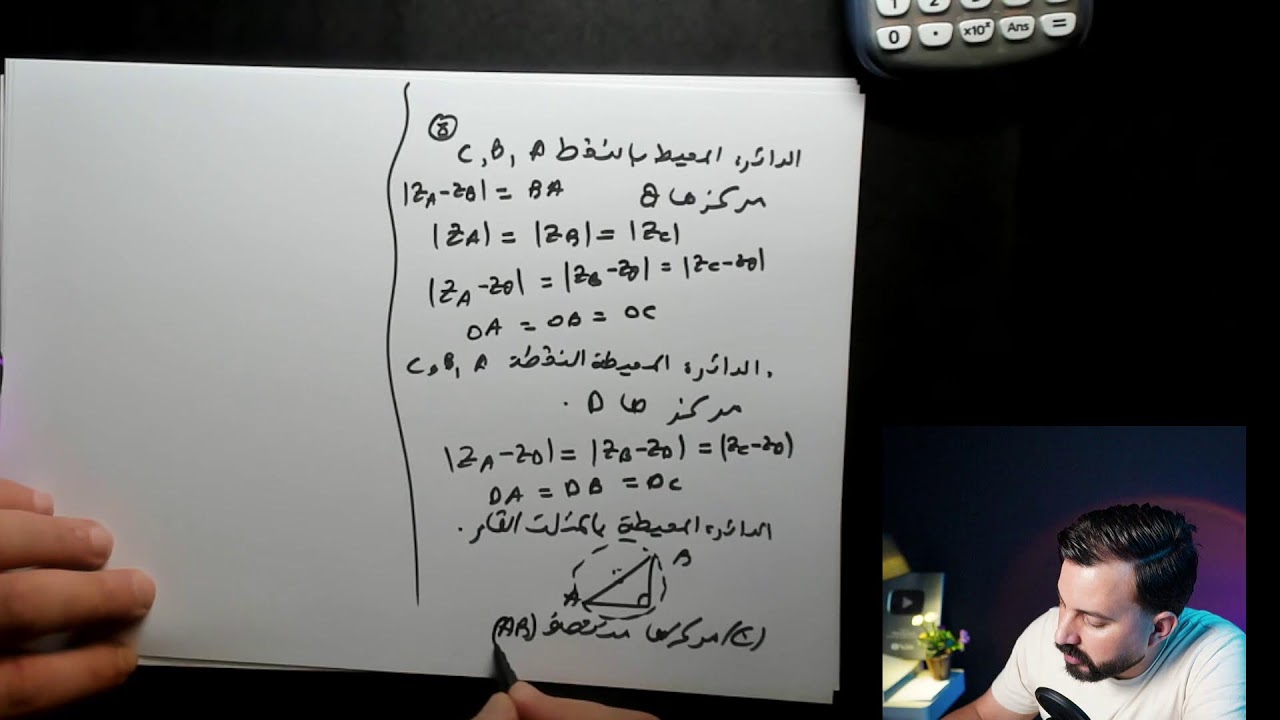 1 2
0 . ×10ˣ Ans =
⑧
الدائرة المحيط بالنقط C, B, A
|Z_A-Z_B| = BA مركزها O
|Z_A| = |Z_B| = |Z_C|
|Z_A-Z_O| = |Z_B-Z_O| = |Z_C-Z_O|
OA = OB = OC
. الدائرة المحيطة النقطة C, B, A
مركزها D .
|Z_A-Z_D| = |Z_B-Z_D| = |Z_C-Z_D|
DA = DB = DC
الدائرة المحيطة بالمثلث القائم .
B
A
مركزها منتصف [AB]